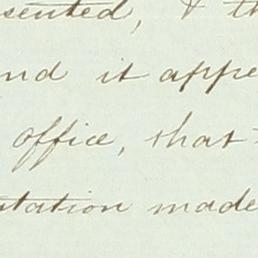 sented, & th
nd it appe
office, that
tation made